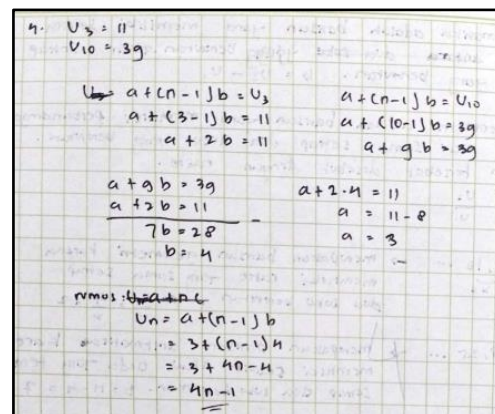 4. U3 = 11
U10 = 39
a+(n-1)b = U3
a+(3-1)b = 11
a + 2b = 11
a+(n-1)b = U10
a+(10-1)b = 39
a+9b = 39
a+9b = 39
a+2b = 11 -
7b = 28
b = 4
a+2.4 = 11
a = 11-8
a = 3
rumus :
Un = a+(n-1)b
= 3+(n-1)4
= 3+4n-4
= 4n-1